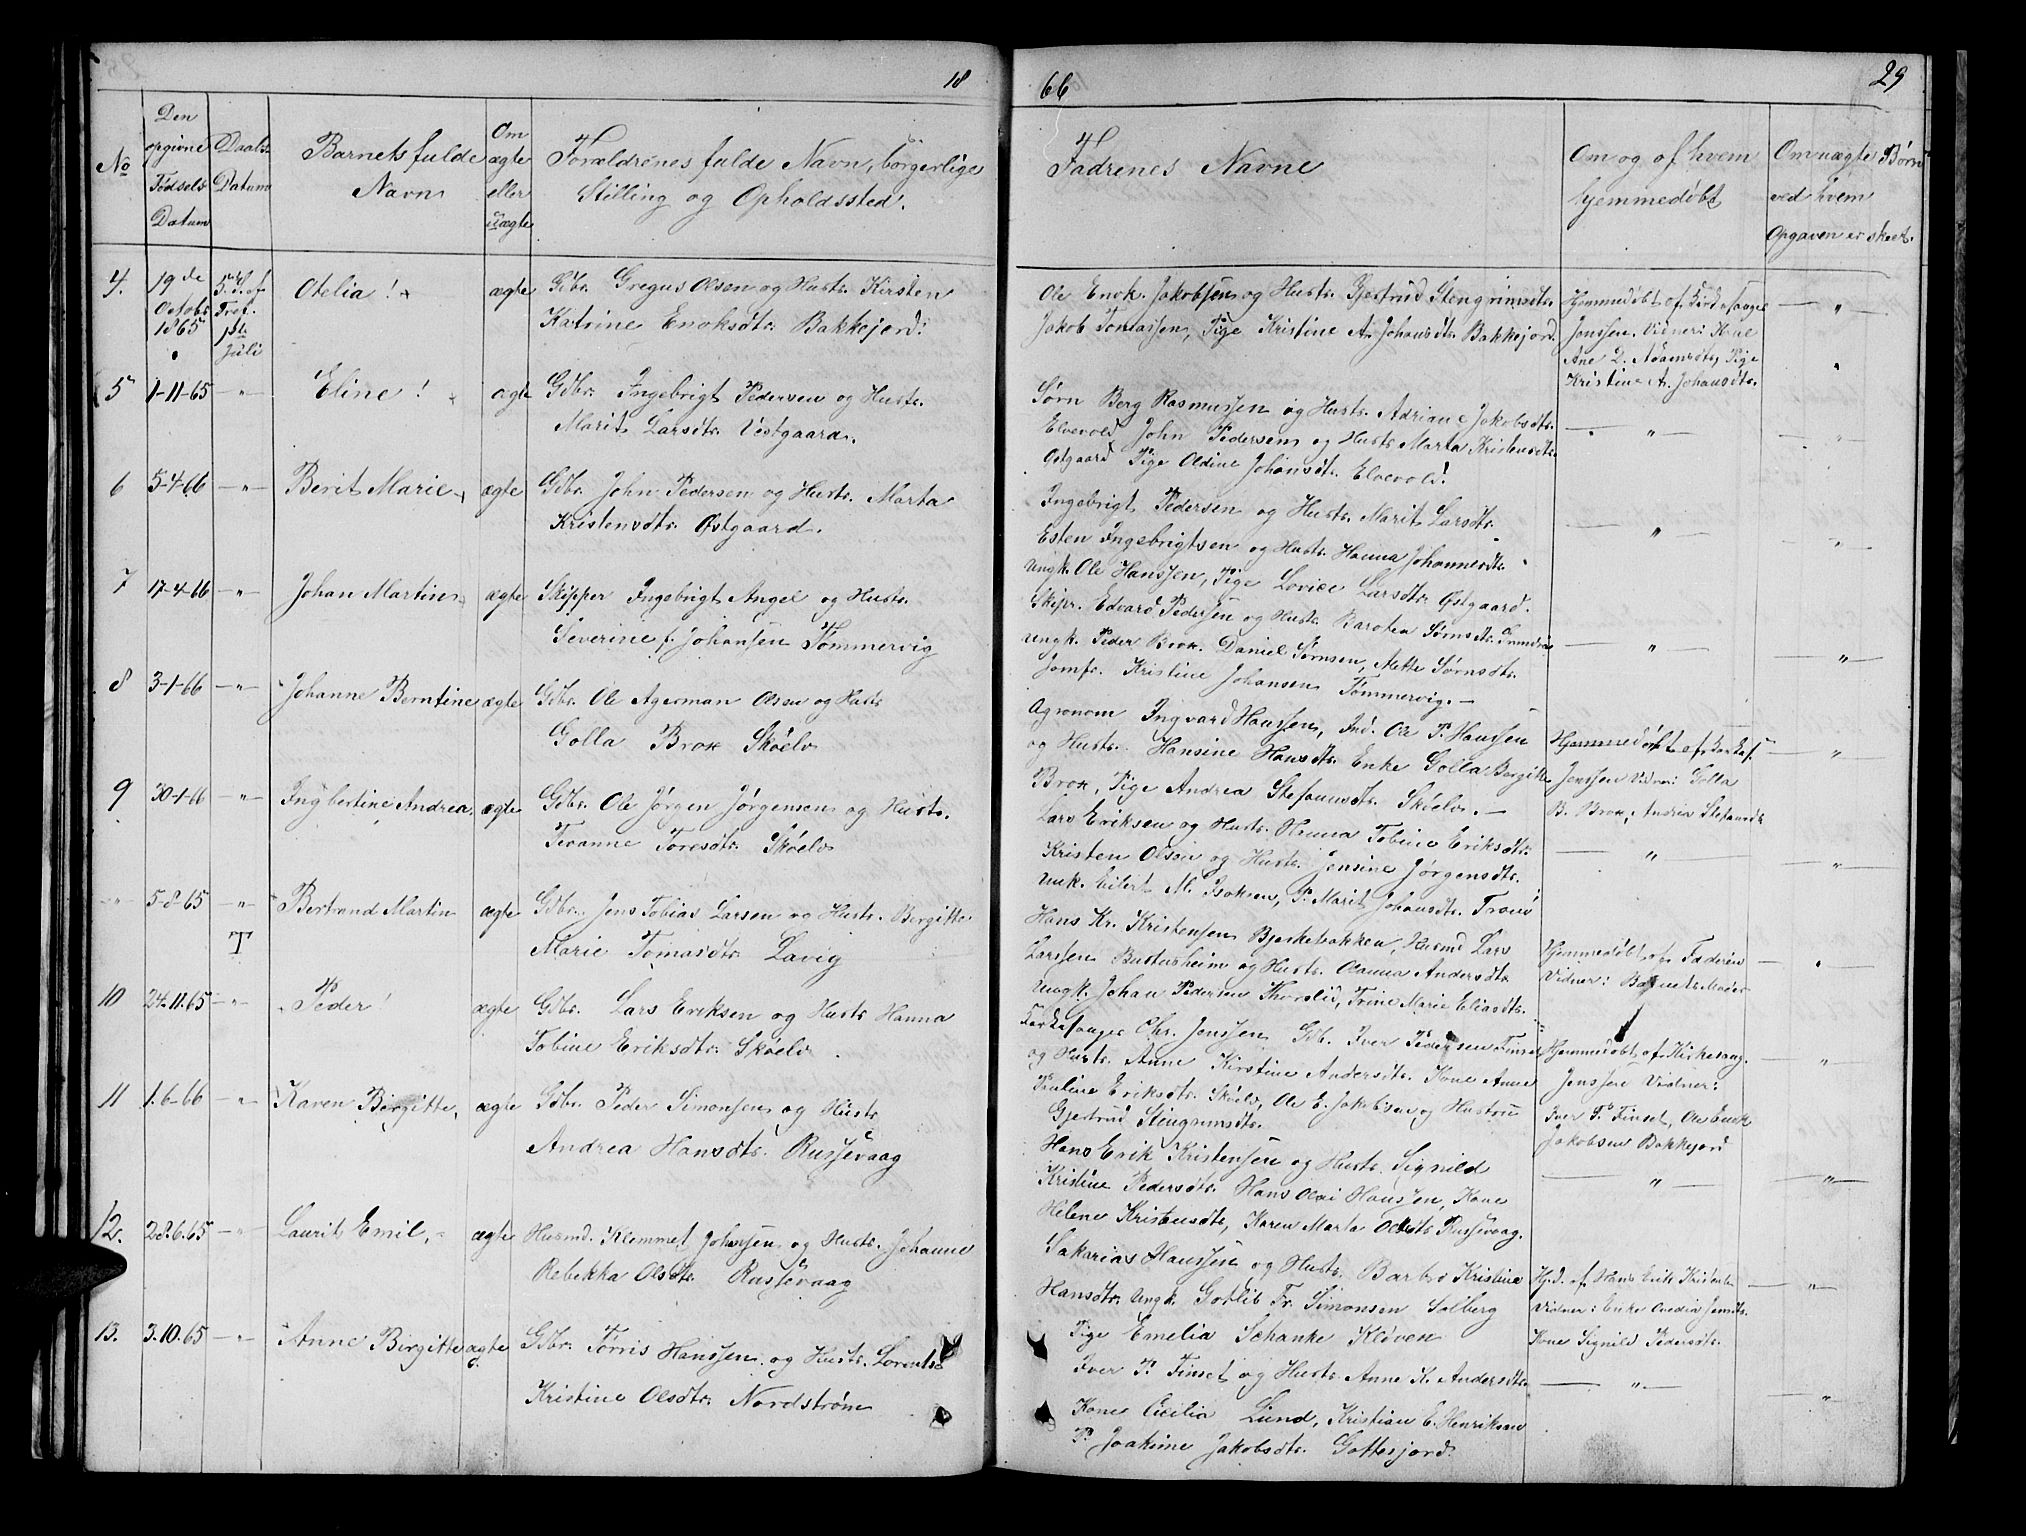 18
66
29
No
Den opgivne Fødsels Datum
Daabs Datum
Barnets fulde Navn
Om ægte eller uægte
Forældrenes fulde Navn, borgerlige Stilling og Opholdssted.
Fadrenes Navne
Om og af hvem hjemmedøbt
Om uægte Børn ved hvem Opgaven er skeet.
4. 19de Octobr 1865 5. S. ef. Tref. 1ste Juli Otelia! ægte Gdbr. Gregus Olsen og Hustr. Kirsten
Katrine Enoksdtr. Bakkejord.
Ole Enok. Jakobsen og Hustr. Gjertrud Stengrimsdtr.
Jakob Tomassen, Pige Kristine A. Johansdtr. Bakkejord.
Hjemmedøbt af Kirkesanger
Jenssen. Vidner: Kone
Ane L. Adamsdtr, Pige
Kristine A. Johansdtr.
5 1-11-65 -"- Eline! ægte Gdbr. Ingebrigt Pedersen og Hustr.
Marit Larsdtr. Vestgaard.
Sørn Berg Rasmussen og Hustr. Adriane Jakobsdtr.
Elvevold, John Pedersen og Hustr. Marta Kristensdtr.
Østgaard Pige Oldine Johansdt. Elvevold!
6 5-4-66 -"- Berit Marie ægte Gdbr. John Pedersen og Hustr. Marta
Kristensdtr. Østgaard.
Ingebrigt Pedersen og Hustr. Marit Larsdtr.
Esten Ingebrigtsen og Hustr. Hanna Johannesdtr.
Ungk. Ole Hanssen, Pige Lovice Larsdtr. Østgaard.
7 17-4-66 -"- Johan Martin ægte Skipper Ingebrigt Angel og Hustr.
Severine f. Johansen Tømmervig
Skipr. Edvard Pedersen og Hustr. Barotea Sørnsdtr.
Ungk. Peder Brox. Daniel Sørnsen, Mette Sørnsdtr.
Jomfr. Kristine Johansen Tømmervig.-
8 3-1-66 -"- Johanne Berntine ægte Gdbr. Ole Agerman Olsen og Hustr
Golla Brox Skøelv
Agronom Ingvard Hanssen, Ind. Ole P. Hanssen
og Hustr. Hansine Hansdtr. Enke Golla Bergitte
Brox, Pige Andrea Stefansdtr. Skøelv.-
Hjemmedøbt af Kirkes.
Jenssen Vidner: Golla
B. Brox, Andrea Stefansdtr
9 30-1-66 -"- Ingbertine Andrea. ægte Gdbr. Ole Jørgen Jørgensen og Hustr.
Tevanne Toresdtr. Skøelv
Lars Eriksen og Hustr. Hanna Tobine Eriksdtr.
Kristen Olsen og Hustr. Jensine Jørgensdtr.
Unk. Eilert M. Isaksen, P. Marit Johansdtr.
" 5-8-65 -"- Bertrand Martin ægte Gdbr. Jens Tobias Larsen og Hustr. Bergitte
T
Marie Tomasdtr. Lavig
Hans Kr. Kristensen Bjerkebakken, Husmd Lars
Larssen Bustersheim og Hustr. Olanna Andersdtr
Ungk. Johan Pedersen Thorslid, Trine Marie Eliasdtr.
Hjemmedøbt af Faderen
Vidner: Barnets Moder
10 24.11.65 -"- Peder! ægte Gdbr. Lars Eriksen og Hustr Hanna
Tobine Eriksdtr. Skøelv.
Kirkesanger Chr. Jenssen, Gdb. Iver Pedersen Finset
og Hustr. Anne Kirstine Andersdtr. Kone Anne
Pauline Eriksdtr. Skøelv, Ole E. Jakobsen og Hustru
Gjertrud Stingrimsdtr.
Hjemmedøbt af Kirkesang.
Jenssen Vidner:
Iver P. Finset, Ole Enok
Jakobsen Bakkejord
11 1.6-66 -"- Karen Birgitte, ægte Gdbr. Peder Simonsen og Hustr
Andrea Hansdtr. Russevaag
Hans Erik Kristensen og Hustr. Signild
Kristine Pedersdtr. Hans Olai Hanssen, Kone
Helene Kristensdtr, Karen Marta Olsdtr Russevaag.
12. 28.6.65 -"- Laurits Emil, ægte Husmd. Klemmet Johansen og Hustr. Johanne
Rebekka Olsdtr. Russevaag
Sakarias Hanssen og Hustr. Barbro Kristine
Hansdtr. Ungk. Gotlib Fr. Simonsen Solberg
Pige Emelia Schanke Kløven
Hj.d. af Hans Erik Kristens.
Vidner: Enke Ovedia Jensdtr.
Kone Signild Pedersdtr.
13. 3.10.65 -"- Anne Birgitte ægte Gdbr. Torris Hanssen og Hustr. Lorentse
Kristine Olsdtr. Nordstrøm
Iver P. Finset og Hustr. Anne K. Andersdtr.
Kone Cicilia Lund, Kristian E. Henriksen
P. Joakime Jakobsdtr. Gottesjord.